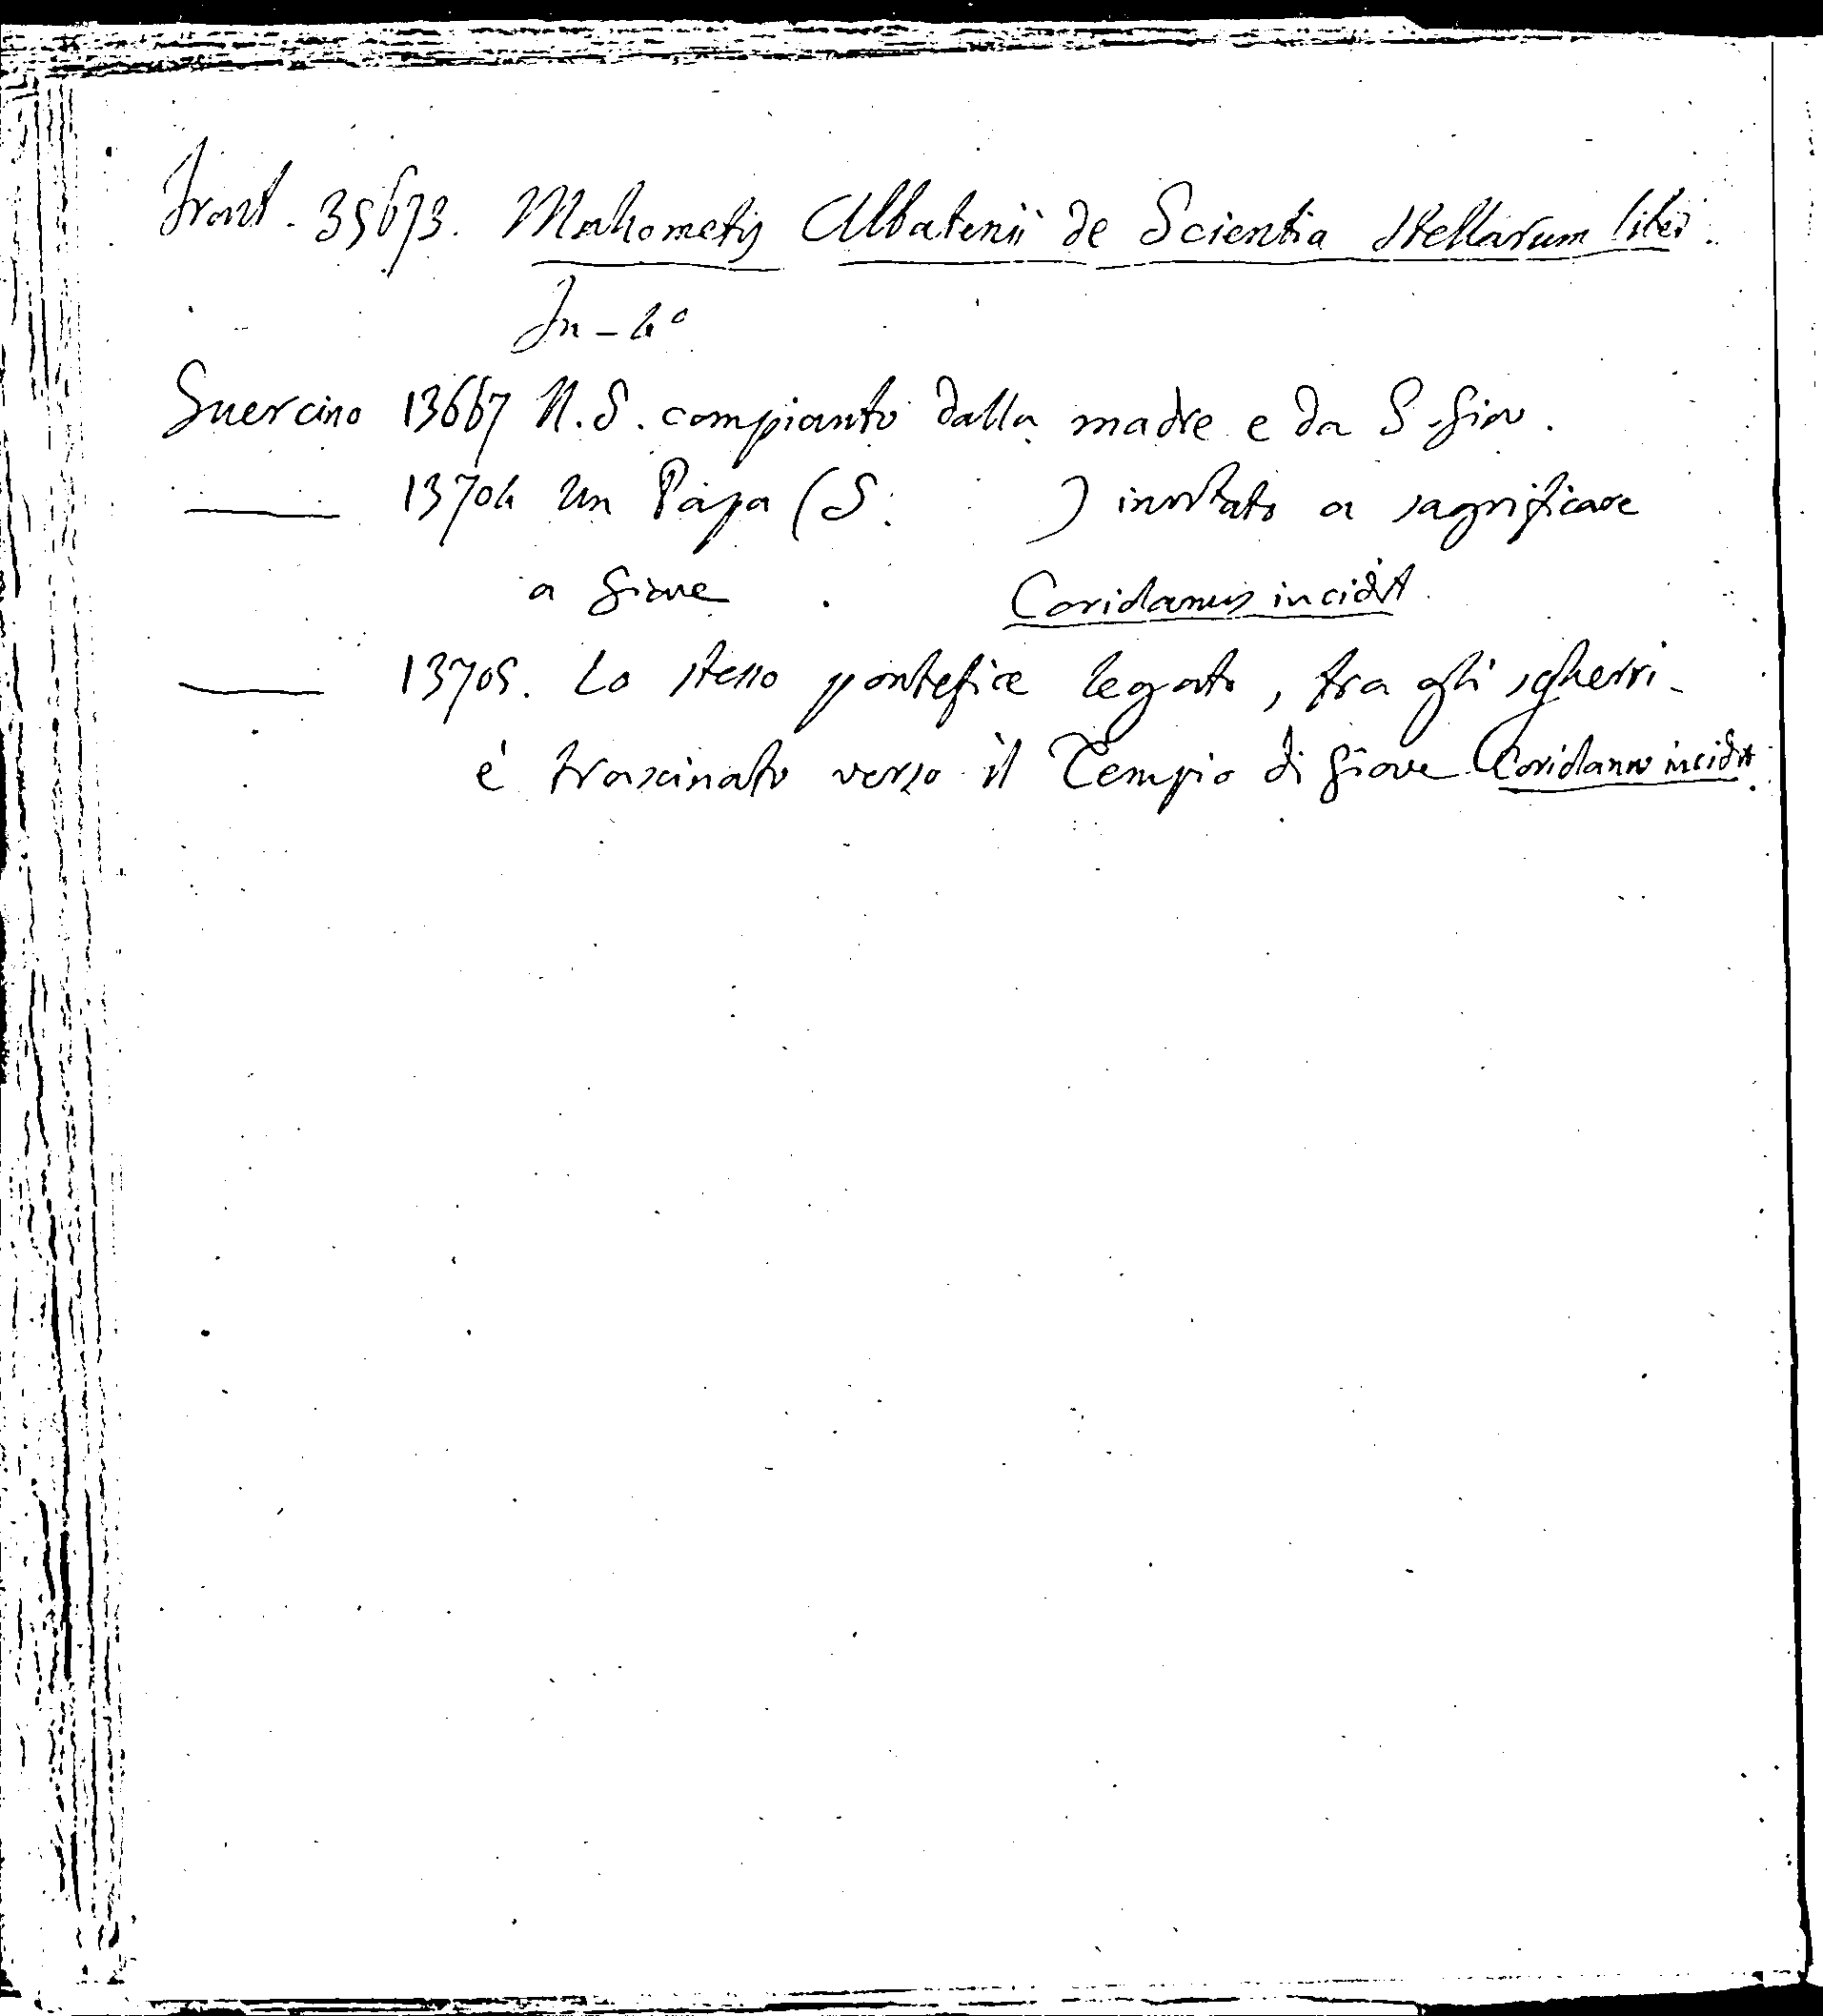 Front. 35673. Mahometis Albatenii de Scientia stellarum liber.
In-4°
Guercino 13667 N.S. compianto dalla madre e da S. Giov.
—— 13704 Un Papa (S. ) invitato a sagrificare
a Giove Coriolanus incidit
—— 13705. Lo stesso pontefice legato, tra gli sgherri
è trascinato verso il Tempio di Giove Coriolanus incidit.